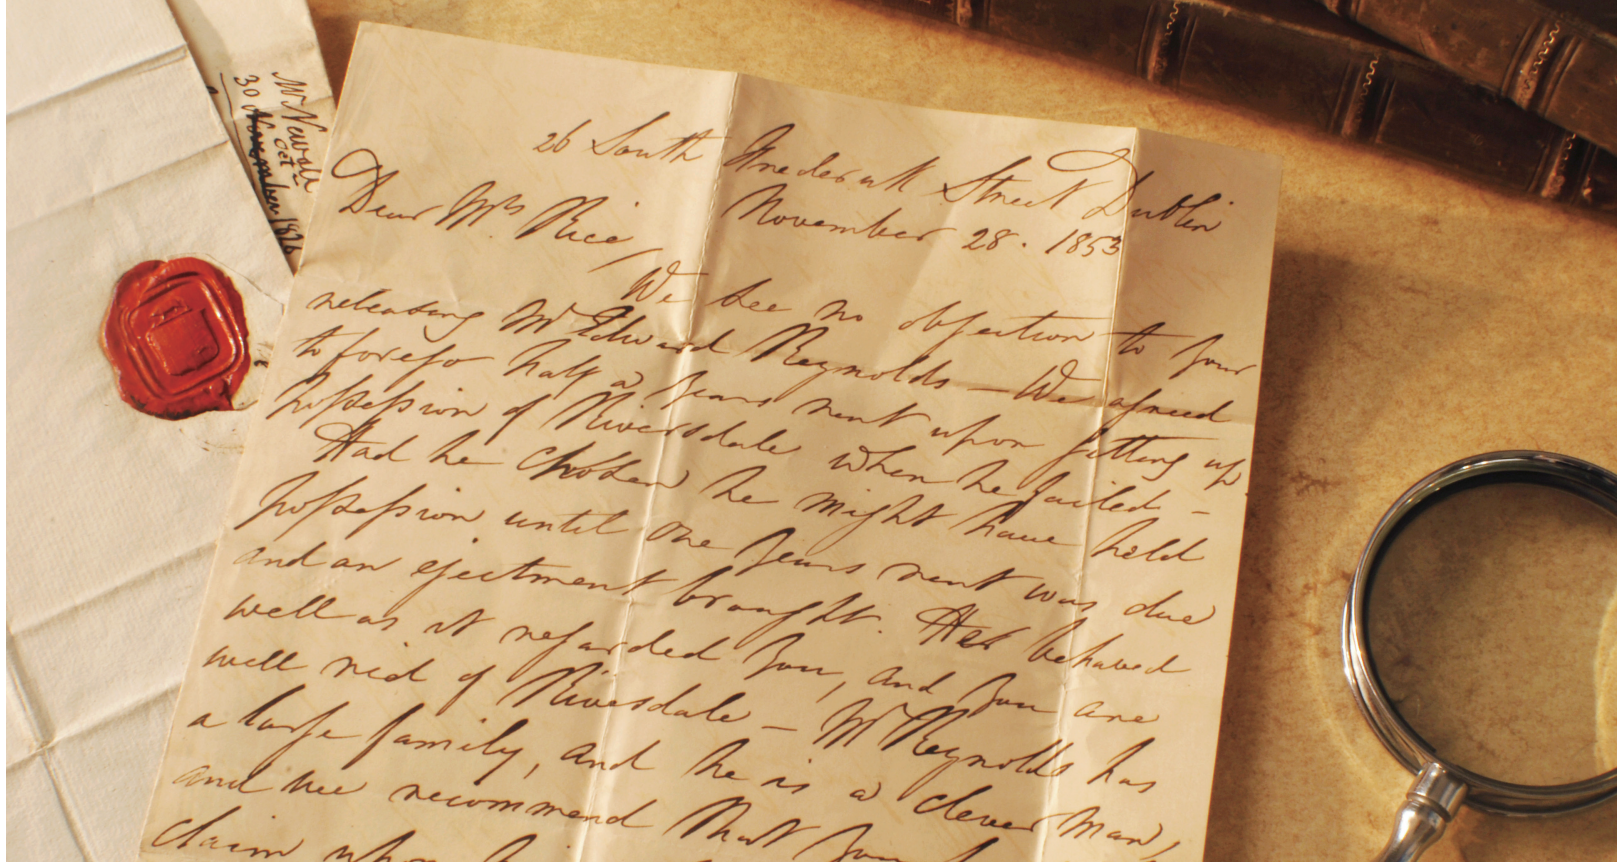 26 South Frederick Street Dublin
November 28. 1853
Dear Mrs. Rice,
We see no objection to your
releasing Mr Edward Reynolds — We agreed
to forego half a years rent upon getting up
possession of Riversdale when he failed —
Had he chosen he might have held
possession until one years rent was due
and an ejectment brought. He behaved
well as it regarded you, and you are
well rid of Riversdale — Mr Reynolds has
a large family, and he is a clever man,
and we recommend that you
claim upon
Mr
30 November 1826